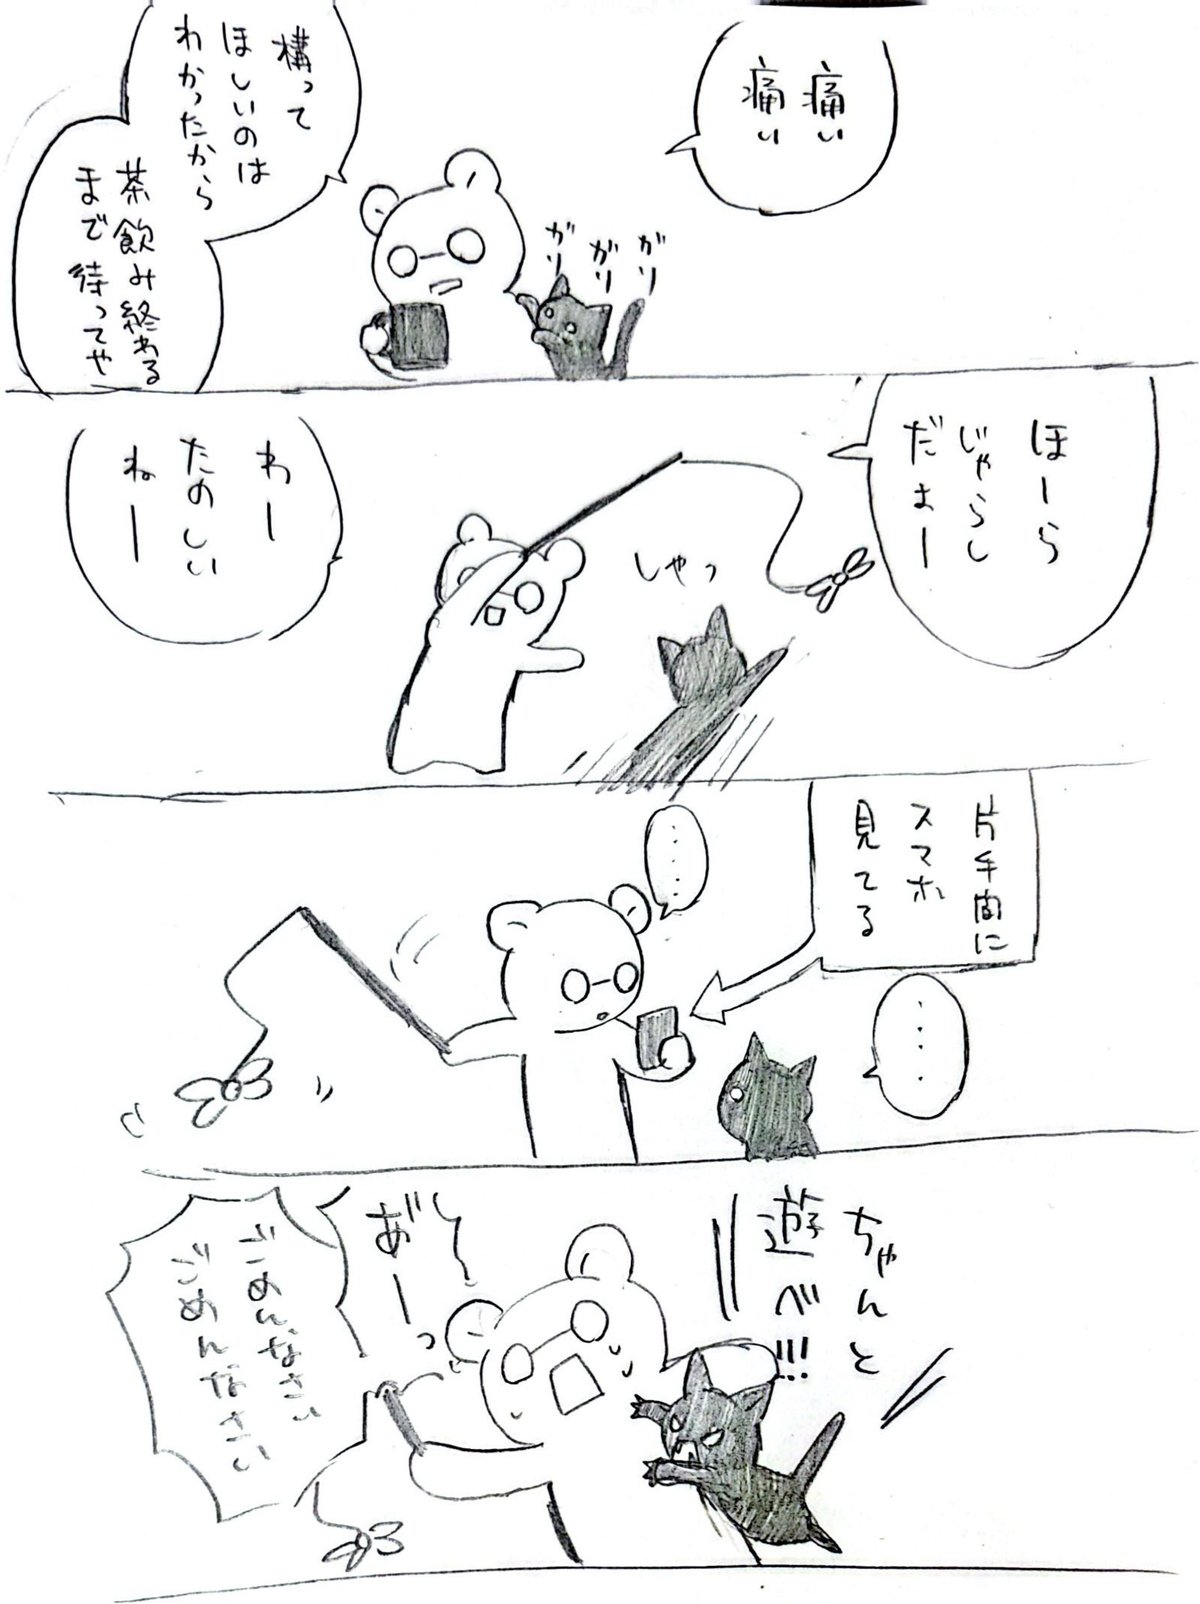 痛い
痛い
がり
がり
がり
構って
ほしいのは
わかったから
茶飲み終わる
まで待ってや
ほーら
じゃらし
だよー
しゃっ
わー
たのしい
ねー
片手間に
スマホ
見てる
・・・・・
・・・・
ちゃんと
遊べ!!!
あ゛ーっ
ごめんなさい
ごめんなさい